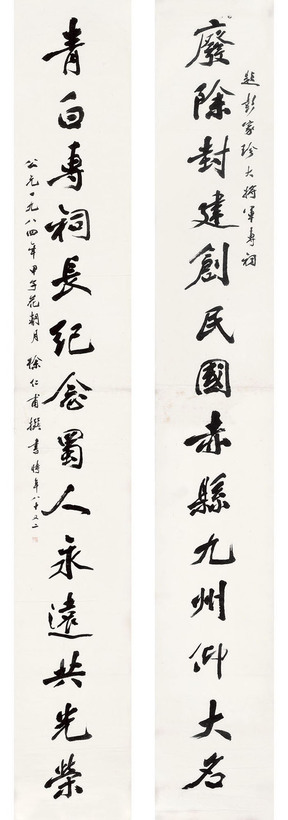 題彭家珍大將軍專祠
廢除封建創民國赤縣九州仰大名
青白專祠長紀念蜀人永遠共光榮
公元一九八四年甲子花朝月 徐仁甫撰書時年八十又二